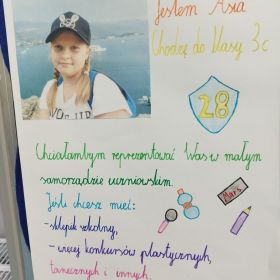 Jestem Asia
Chodzę do klasy 3c
28
Chciałambym reprezentować Was w małym
samorządzie uczniowskim.
Jeśli chcesz mieć:
Mars
- sklepik szkolny,
- więcej konkursów plastycznych,
tanecznych i innych.